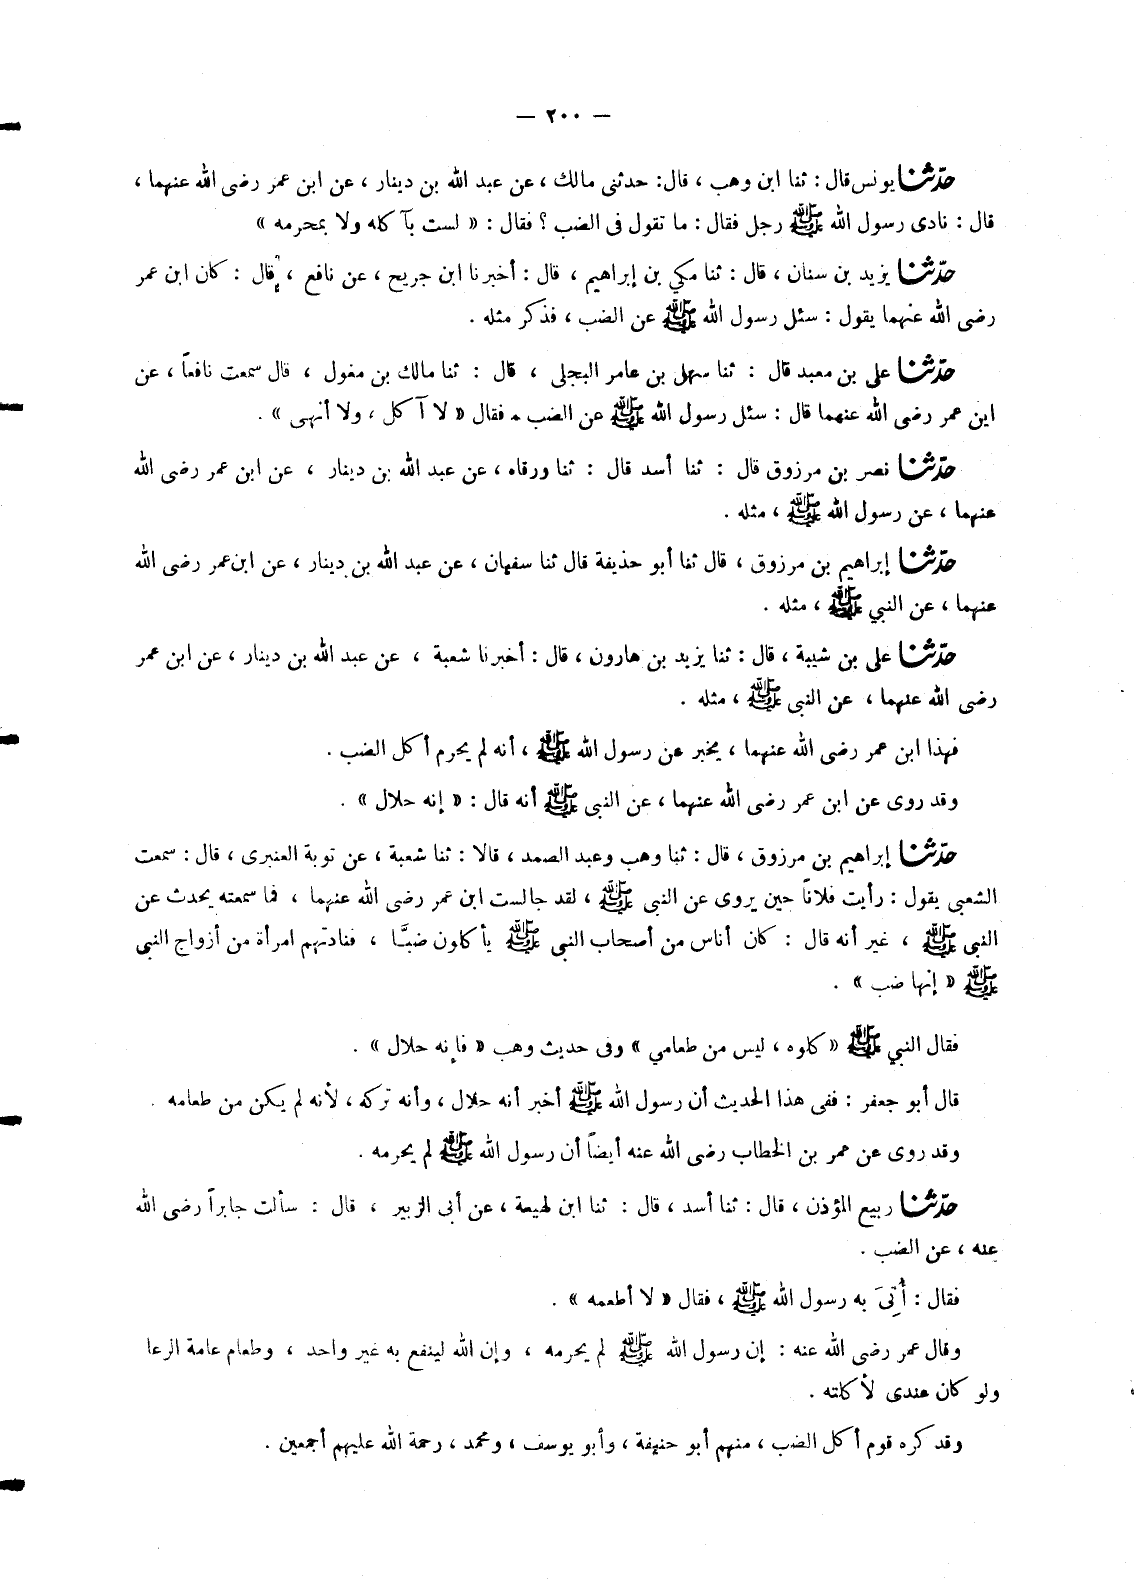 — ٢٠٠ —
حدّثنا يونس قال : ثنا ابن وهب ، قال: حدثنى مالك ، عن عبد الله بن دينار ، عن ابن عمر رضى الله عنهما ،
قال : نادى رسول الله ﷺ رجل فقال : ما تقول فى الضب ؟ فقال : « لست بآكله ولا بمحرمه »
حدّثنا يزيد بن سنان ، قال : ثنا مكي بن إبراهيم ، قال : أخبرنا ابن جريح ، عن نافع ، قال : كان ابن عمر
رضى الله عنهما يقول : سئل رسول الله ﷺ عن الضب ، فذكر مثله .
حدّثنا على بن معبد قال : ثنا سهل بن عامر البجلى ، قال : ثنا مالك بن مغول ، قال سمعت نافعاً ، عن
ابن عمر رضى الله عنهما قال : سئل رسول الله ﷺ عن الضب ، فقال « لا آكل ، ولا أنهى » .
حدّثنا نصر بن مرزوق قال : ثنا أسد قال : ثنا ورقاء ، عن عبد الله بن دينار ، عن ابن عمر رضى الله
عنهما ، عن رسول الله ﷺ ، مثله .
حدّثنا إبراهيم بن مرزوق ، قال ثنا أبو حذيفة قال ثنا سفيان ، عن عبد الله بن دينار ، عن ابن عمر رضى الله
عنهما ، عن النبي ﷺ ، مثله .
حدّثنا على بن شيبة ، قال : ثنا يزيد بن هارون ، قال : أخبرنا شعبة ، عن عبد الله بن دينار ، عن ابن عمر
رضى الله عنهما ، عن النبى ﷺ ، مثله .
فهذا ابن عمر رضى الله عنهما ، يخبر عن رسول الله ﷺ ، أنه لم يحرم أكل الضب .
وقد روى عن ابن عمر رضى الله عنهما ، عن النبى ﷺ أنه قال : « إنه حلال » .
حدّثنا إبراهيم بن مرزوق ، قال : ثنا وهب وعبد الصمد ، قالا : ثنا شعبة ، عن توبة العنبرى ، قال : سمعت
الشعبى يقول : رأيت فلاناً حين يروى عن النبى ﷺ ، لقد جالست ابن عمر رضى الله عنهما ، فما سمعته يحدث عن
النبى ﷺ ، غير أنه قال : كان أناس من أصحاب النبى ﷺ يأكلون ضبًّا ، فنادتهم امرأة من أزواج النبى
ﷺ « إنها ضب » .
فقال النبي ﷺ « كلوه ، ليس من طعامي » وفى حديث وهب « فإنه حلال » .
قال أبو جعفر : ففى هذا الحديث أن رسول الله ﷺ أخبر أنه حلال ، وأنه تركه ، لأنه لم يكن من طعامه .
وقد روى عن عمر بن الخطاب رضى الله عنه أيضاً أن رسول الله ﷺ لم يحرمه .
حدّثنا ربيع المؤذن ، قال : ثنا أسد ، قال : ثنا ابن لهيعة ، عن أبى الزبير ، قال : سألت جابراً رضى الله
عنه ، عن الضب .
فقال : أُتِىَ به رسول الله ﷺ ، فقال « لا أطعمه » .
وقال عمر رضى الله عنه : إن رسول الله ﷺ لم يحرمه ، وإن الله لينفع به غير واحد ، وطعام عامة الرعا
ولو كان عندى لأكلته .
وقد كره قوم أكل الضب ، منهم أبو حنيفة ، وأبو يوسف ، ومحمد ، رحمة الله عليهم أجمعين .